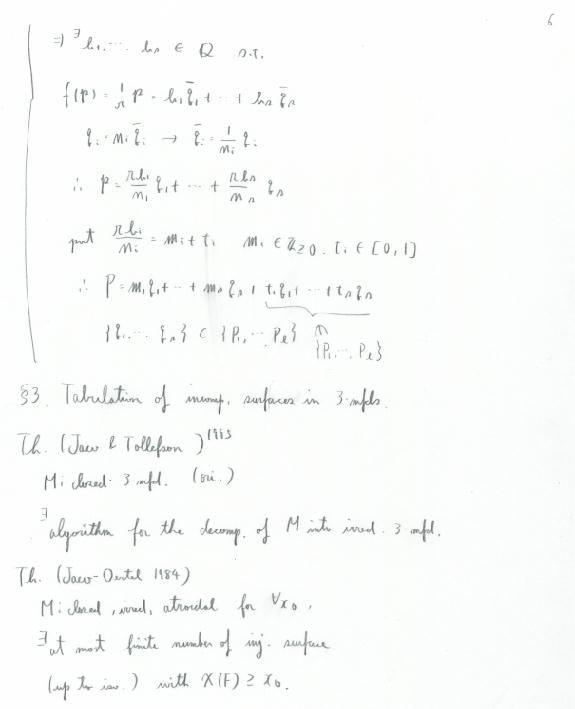 6
⇒ ∃ b₁, … bₛ ∈ Q s.t.
f(p) = 1/r p = b₁ q̄₁ + … + bₛ q̄ₛ
qᵢ = nᵢ q̄ᵢ → q̄ᵢ = 1/nᵢ qᵢ
∴ p = rb₁/n₁ q₁ + … + rbₛ/nₛ qₛ
put rbᵢ/nᵢ = mᵢ + tᵢ mᵢ ∈ Z≥0. tᵢ ∈ [0, 1]
∴ P = m₁q₁ + … + mₛqₛ + t₁q₁ + … + tₛqₛ
{q₁, … qₛ} ⊂ {P₁, … Pℓ} ∈ {P₁, … Pℓ}
§3. Tabulation of incomp. surfaces in 3-mfds.
Th. (Jaco & Tollefson)
M: closed 3 mfd. (ori.)
∃ algorithm for the decomp. of M into irred. 3 mfd.
Th. (Jaco-Oertel 1984)
M: closed, irred, atroidal for ∀x₀,
∃ at most finite number of inj. surface
(up to iso.) with χ(F) ≥ x₀.